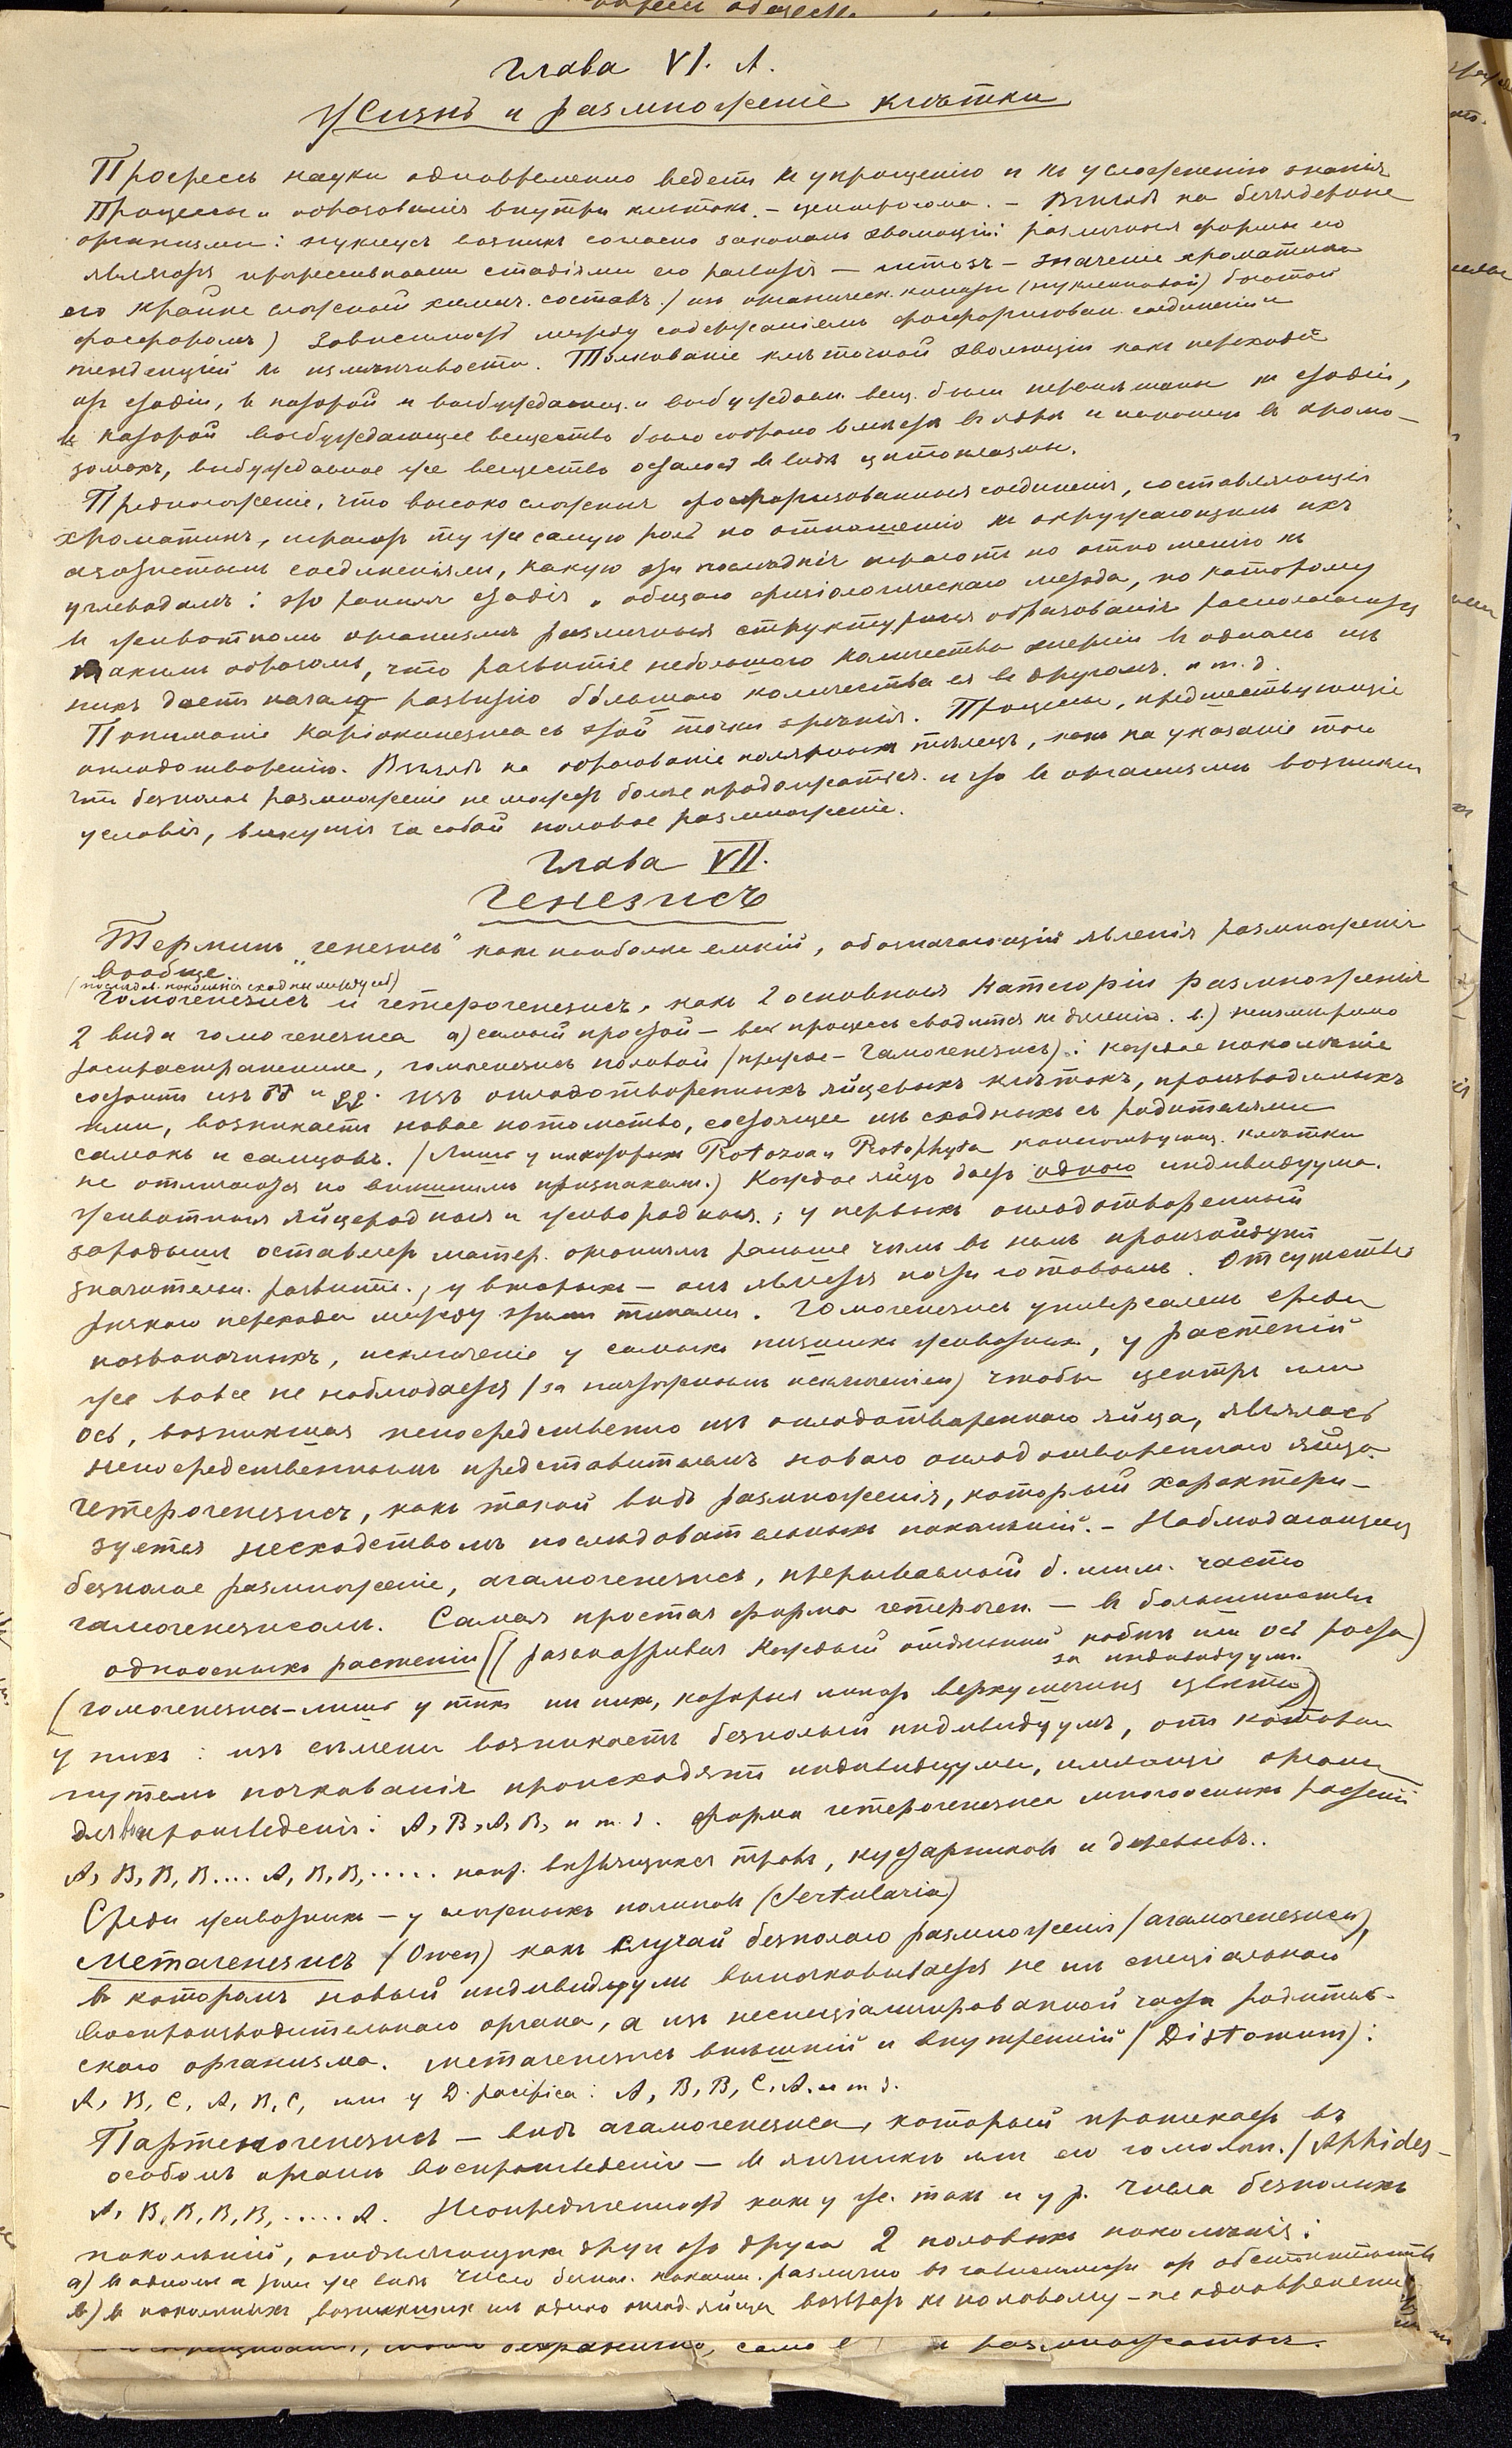 Глава VI. А.
Жизнь и размноженіе клѣтки
Прогрессъ науки одновременно ведетъ къ упрощенію и къ усложненію знанія
Процессы и образованія внутри клѣтокъ. – центросома. – Взглядъ на безъядерные
организмы: нуклеусъ возникъ согласно законамъ эволюціи: различныя формы его
являются прогрессивными стадіями его развитія – митозъ – значеніе хроматина
его крайне сложный химич. составъ / изъ органическ. кислоты (нуклеиновой) богатой
фосфоромъ) Зависимость между содержаніемъ фосфоризован. соединеній и
тенденціей къ измѣнчивости. Толкованіе клѣточной эволюціи какъ перехода
отъ стадіи, въ которой и возбуждающ. и возбуждаем. вещ. были перемѣшаны къ стадіи,
въ которой возбуждающее вещество было собрано вмѣстѣ въ ядрѣ и наконецъ въ хромо-
зомахъ, возбуждаемое же вещество осталось въ видѣ цитоплазмы.
Предположеніе, что высоко сложныя фосфоризованныя соединенія, составляющія
хроматинъ, играютъ ту же самую роль по отношенію къ окружающимъ ихъ
азотистымъ соединеніямъ, какую эти послѣднія играютъ по отношенію къ
углеводамъ: это ранняя стадія общаго физіологическаго метода, по которому
въ животномъ организмѣ различныя структурныя образованія располагаются
такимъ образомъ, что развитіе небольшого количества энергіи въ одномъ изъ
нихъ даетъ начало развитію бо́льшаго количества ея въ другомъ. и т. д.
Пониманіе каріокинезиса съ этой точки зрѣнія. Процессы, предшествующіе
оплодотворенію. Взглядъ на образованіе полярныхъ тѣлецъ, какъ на указаніе того
что безполое размноженіе не можетъ болѣе продолжаться. и что въ организмѣ возникли
условія, влекущія за собой половое размноженіе.
Глава VII.
Генезисъ
Терминъ „генезисъ" какъ наиболѣе емкій, обозначающій явленія размноженія
вообще.
(послѣдов. поколѣнія сходны между соб)
Гомогенезисъ и гетерогенезисъ, какъ 2 основныя категоріи размноженія
2 вида гомогенезиса а) самый простой – весь процессъ сводится къ дѣленію. в) неизмѣримо
распространеннѣе, гомогенезисъ половой (прежде – гамогенезисъ): каждое поколѣніе
состоитъ изъ ♂♂ и ♀♀. Изъ оплодотворенныхъ яйцевыхъ клѣтокъ, производимыхъ
ими, возникаетъ новое потомство, состоящее изъ сходныхъ съ родителями
самокъ и самцовъ. (Лишь у нѣкоторыхъ Protozoa и Protophyta конъюгирующ. клѣтки
не отличаются по внѣшнимъ признакамъ.) Каждое яйцо даетъ одного индивидуума.
Животныя яйцеродныя и живородныя.; у первыхъ оплодотворенный
зародышъ оставляетъ матер. организмъ раньше чѣмъ въ немъ произойдутъ
значительн. развитіе.; у вторыхъ – онъ является почти готовымъ. Отсутствіе
рѣзкаго перехода между этими типами. Гомогенезисъ универсаленъ среди
позвоночныхъ, исключеніе у самыхъ низшихъ животныхъ, у растеній
же вовсе не наблюдается (за ничтожнымъ исключеніем) чтобы центръ или
ось, возникшая непосредственно изъ оплодотвореннаго яйца, являлась
непосредственнымъ представителемъ новаго оплодотвореннаго яйца.
Гетерогенезисъ, какъ такой видъ размноженія, который характери-
зуется несходствомъ послѣдовательныхъ поколѣній. – Наблюдающееся
безполое размноженіе, агамогенезисъ, прерываемый б. или м. часто
гамогенезисомъ. Самая простая форма гетероген. – въ большинствѣ
одноосныхъ растеній ((разсматривая каждый отдѣльный побѣгъ или ось роста)
за индивидуум.
(гомогенезисъ – лишь у тѣхъ изъ нихъ, которыя имѣютъ верхушечные цвѣты))
у нихъ: изъ сѣмени возникаетъ безполый индивидуумъ, отъ котораго
путемъ почкованія происходятъ индивидуумы, имѣющіе органы
для воспроизведенія: А, В, А, В, и т. д. форма гетерогенезиса многоосныхъ растеній
А, В, В, В.... А, В, В, ..... напр. вѣтвящихся травъ, кустарниковъ и деревьевъ..
Среди животныхъ – у морскихъ полиповъ (Sertularia)
Метагенезисъ (Owen) какъ случай безполаго размноженія (агамогенезиса),
въ которомъ новый индивидуумъ выпочковывается не изъ спеціальнаго
воспроизводительнаго органа, а изъ неспеціализированной части родитель-
скаго организма. метагенезисъ внѣшній и внутренній (Distomum):
А, В, С, А, В, С, или у D. pacifica: А, В, В, С, А. и т. д.
Партеногенезисъ – видъ агамогенезиса, который протекаетъ въ
особомъ органѣ воспроизведенія – въ яичникѣ или его гомологѣ. (Aphides –
А, В, В, В, В, ..... А. Неопредѣленность какъ у ж. такъ и у р. числа безполыхъ
поколѣній, отдѣляющихъ другъ отъ друга 2 половыхъ поколѣнія:
а) въ одномъ и томъ же видѣ число безпол. поколѣн. различно въ зависимости отъ обстоятельствъ
в) въ поколѣніяхъ, возникшихъ изъ одного оплод. яйца возвратъ къ половому – не одновремененъ
безгранично, само размножаться.